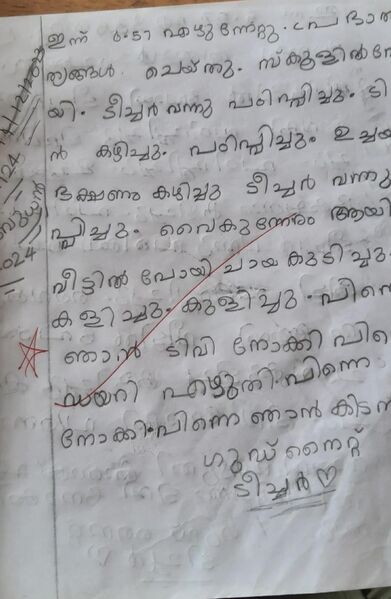 ഇന്ന് 6:57 എഴുന്നേറ്റു. പ്രഭാത
ത്യങ്ങൾ ചെയ്തു. സ്കൂളിൽ
യി. ടീച്ചർ വന്നു പഠിപ്പിച്ചു. ടി
ൻ കഴിച്ചു. പഠിപ്പിച്ചു. ഉച്ചയ
ഭക്ഷണം കഴിച്ചു ടീച്ചർ വന്നു
പ്പിച്ചു. വൈകുന്നേരം ആയി
വീട്ടിൽ പോയി ചായ കുടിച്ചു.
കളിച്ചു. കുളിച്ചു. പിന്നെ
ഞാൻ ടിവി നോക്കി പി
ഡയറി എഴുതി. പിന്നെ
നോക്കി. പിന്നെ ഞാൻ കിടന്ന
ഗുഡ് നൈറ്റ്
ടീച്ചർ ♡